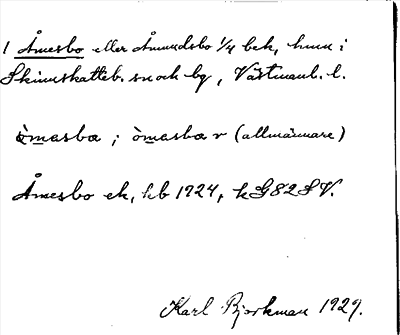 1 Åmesbo eller Åmundsbo 1/4 bek, hmn i
Skinnskatteb. sn och bg, Västmanl. l.
òmasba ; òmasbar (allmännare)
Åmesbo ek, kb 1924, k G 82 SV.
Karl Bjorkman 1929.